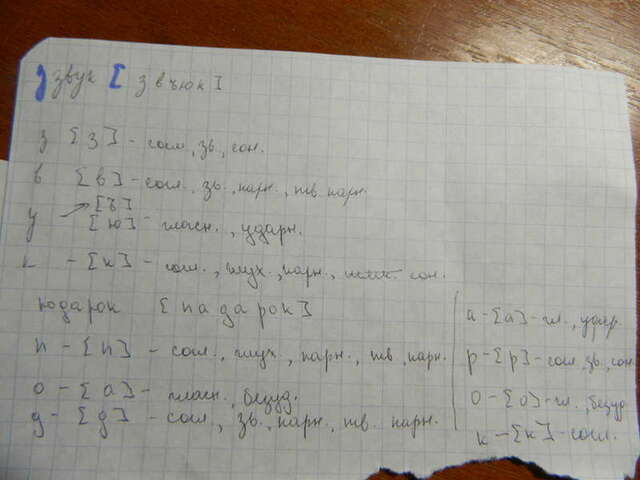 звук [звъюк]
з [з] - согл., зв., сон.
в [в] - согл., зв., парн., тв. парн.
[ъ]
у [ю] - гласн., ударн.
к - [к] - согл., глух., парн., сон.
подарок [падарок]
п - [п] - согл., глух., парн., тв., парн.
о - [а] - гласн., безуд.
д - [д] - согл., зв., парн., тв. парн.
а - [а] - гл., удар.
р - [р] - согл., зв., сон.
о - [о] - гл., безуд.
к - [к] - согл.